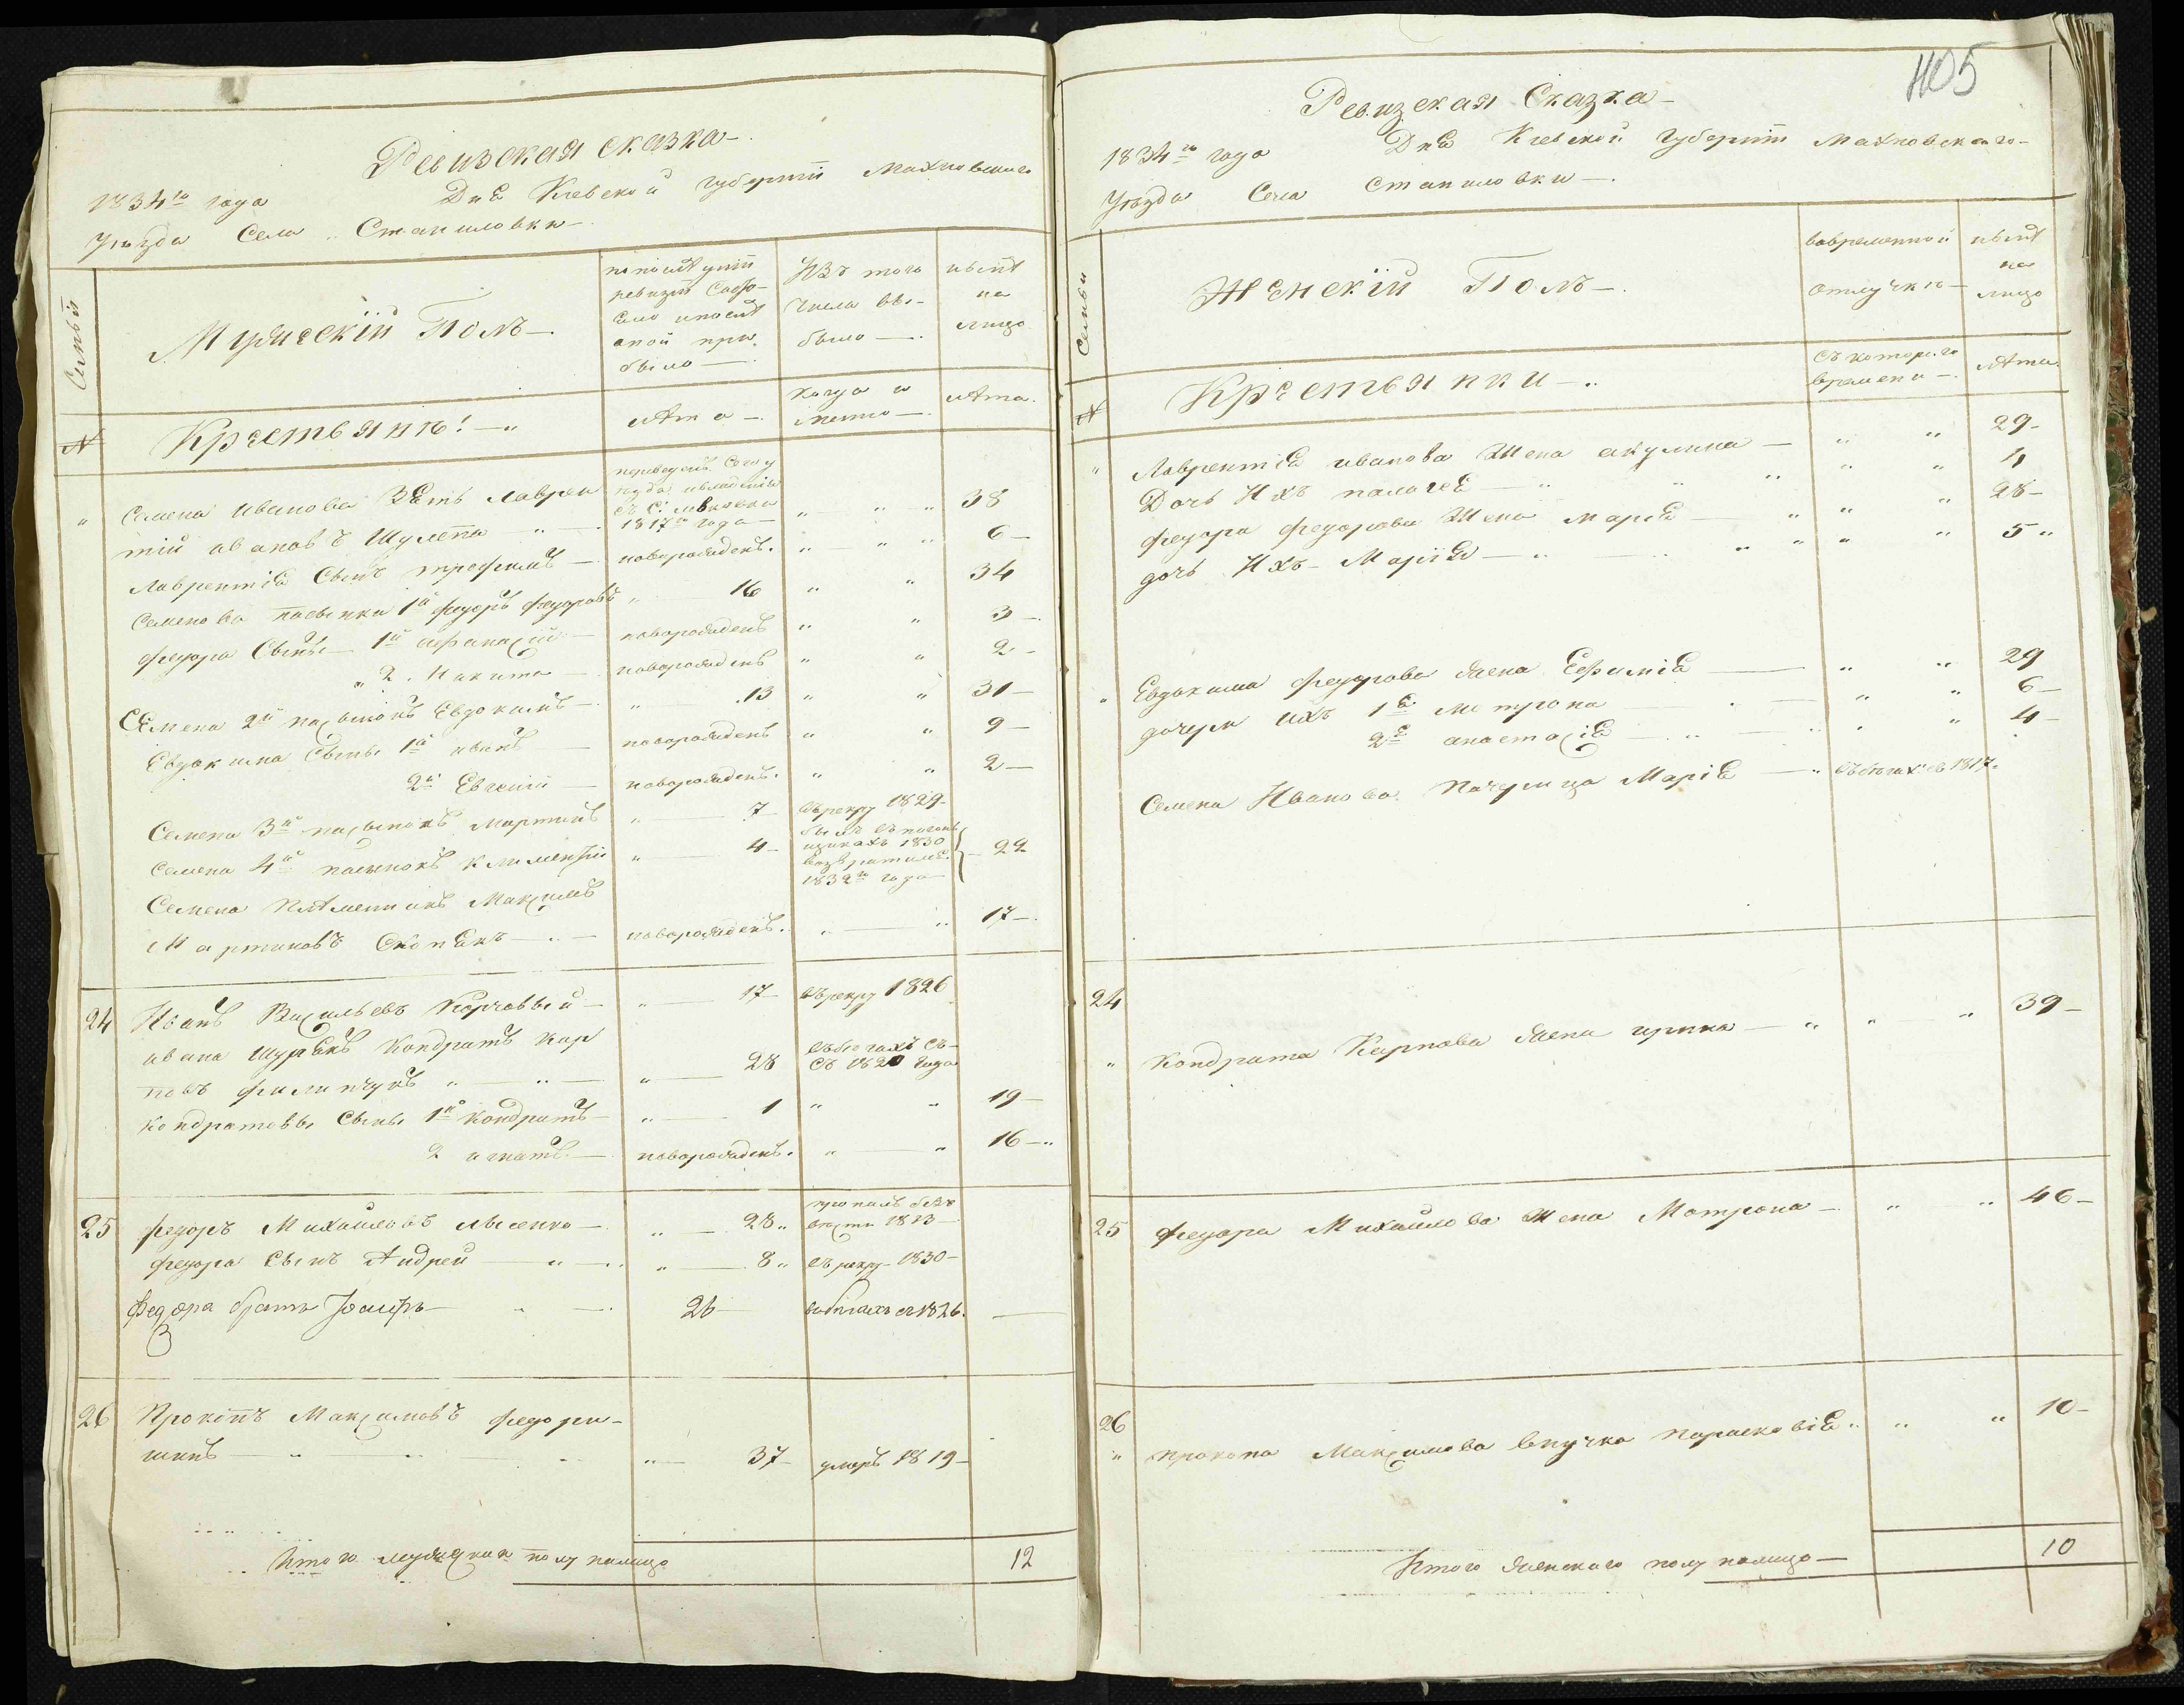 Ревизская сказка
1834го года Дня Киевской губернии Махновскаго
Уѣзда Села Станиловки
Семьи
Мужескій Полъ
по послѣдней
ревизіи состо-
яло и послѣ
оной при-
было
Изъ того
числа вы-
было
нынѣ
на
лицо
№
Крестьянѣ
лѣта
когда и
лѣта
Семена Иванова Зять Лаврен
тій Ивановъ Шулепа
1817го года
38
Лаврентія Сынъ Трофимъ новорожденъ. 6
Семенова пасынки 1й Федоръ Федоровъ 16 34
Федора Сыны 1й Афанасій новорожденъ 3
2. Никита новорожденъ 2
Семена 2й пасынокъ Евдокимъ 13 31
Евдокима Сыны 1й Иванъ новорожденъ 9
2й Евгеній новорожденъ. 2
Семена 3й пасынокъ Мартинъ 7 въ рекру 1829
Семена 4й пасынокъ Климентій 4
1830
1832го года
22
Семена Племенникъ Максимъ
Мартиновъ новорожденъ. 17
24 Иванъ Васильевъ Корчовый 17 въ рекру 1826
Ивана Шурякъ Кондратъ Кар
повъ Филипчукъ 28 въ бегахъ съ
съ 1820 года
Кондратовы Сыны 1й Кондратъ 1 19
2 Игнатъ новорожденъ. 16
25 Федоръ Михайловъ Лысенко 28 пропалъ безъ
вести 1813
Федора Сынъ Андрей 8 въ рекру 1830
Федора братъ Іосифъ 26 въ бѣгахъ съ 1826.
26 Прокопъ Максимовъ Федори-
шинъ 37 умеръ 1819
Итого мужеска полу налицо 12
405
Ревизская Сказка
1834го года Дня Киевской Губерніи Махновскаго
Уѣзда Села Станиловки
Семьи
Женскій Полъ
во временной
отлучкѣ
нынѣ
на
лицо
№
Крестьянки
съ котораго
времени
лѣта
Лаврентія Иванова Жена Акулина 29
Дочь Ихъ Палагея 4
Федора Федорова Жена Марія 28
дочь Ихъ Марія 5
Евдокима Федорова жена Ефимія 29
дочери ихъ 1я Матрона 6
2я Анастасія 4
Семена Иванова Падчерица Марія въ бегахъ съ 1817.
24
Кондрата Карпова жена Ирина 39
25 Федора Михайлова Жена Матрона 46
26
Прокопа Максимова внучка Парасковія 10
Итого женскаго полу налицо 10